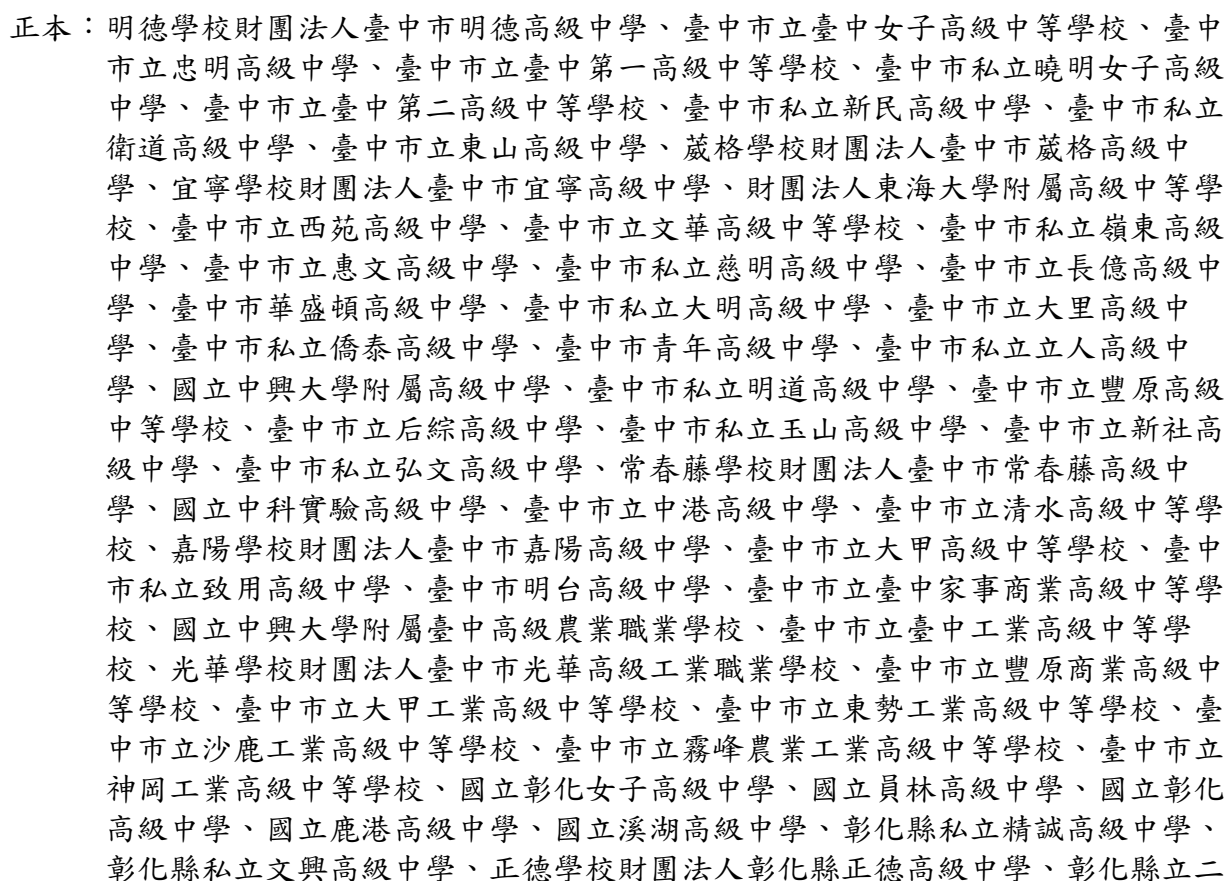 正本：明德學校財團法人臺中市明德高級中學、臺中市立臺中女子高級中等學校、臺中
市立忠明高級中學、臺中市立臺中第一高級中等學校、臺中市私立曉明女子高級
中學、臺中市立臺中第二高級中等學校、臺中市私立新民高級中學、臺中市私立
衛道高級中學、臺中市立東山高級中學、葳格學校財團法人臺中市葳格高級中
學、宜寧學校財團法人臺中市宜寧高級中學、財團法人東海大學附屬高級中等學
校、臺中市立西苑高級中學、臺中市立文華高級中等學校、臺中市私立嶺東高級
中學、臺中市立惠文高級中學、臺中市私立慈明高級中學、臺中市立長億高級中
學、臺中市華盛頓高級中學、臺中市私立大明高級中學、臺中市立大里高級中
學、臺中市私立僑泰高級中學、臺中市青年高級中學、臺中市私立立人高級中
學、國立中興大學附屬高級中學、臺中市私立明道高級中學、臺中市立豐原高級
中等學校、臺中市立后綜高級中學、臺中市私立玉山高級中學、臺中市立新社高
級中學、臺中市私立弘文高級中學、常春藤學校財團法人臺中市常春藤高級中
學、國立中科實驗高級中學、臺中市立中港高級中學、臺中市立清水高級中等學
校、嘉陽學校財團法人臺中市嘉陽高級中學、臺中市立大甲高級中等學校、臺中
市私立致用高級中學、臺中市明台高級中學、臺中市立臺中家事商業高級中等學
校、國立中興大學附屬臺中高級農業職業學校、臺中市立臺中工業高級中等學
校、光華學校財團法人臺中市光華高級工業職業學校、臺中市立豐原商業高級中
等學校、臺中市立大甲工業高級中等學校、臺中市立東勢工業高級中等學校、臺
中市立沙鹿工業高級中等學校、臺中市立霧峰農業工業高級中等學校、臺中市立
神岡工業高級中等學校、國立彰化女子高級中學、國立員林高級中學、國立彰化
高級中學、國立鹿港高級中學、國立溪湖高級中學、彰化縣私立精誠高級中學、
彰化縣私立文興高級中學、正德學校財團法人彰化縣正德高級中學、彰化縣立二